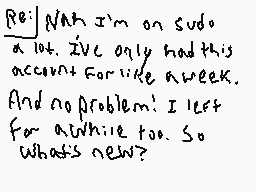 Re: Nah I'm on sudo
a lot. I've only had this
account for like a week.
And no problem! I left
for awhile too. So
what's new?